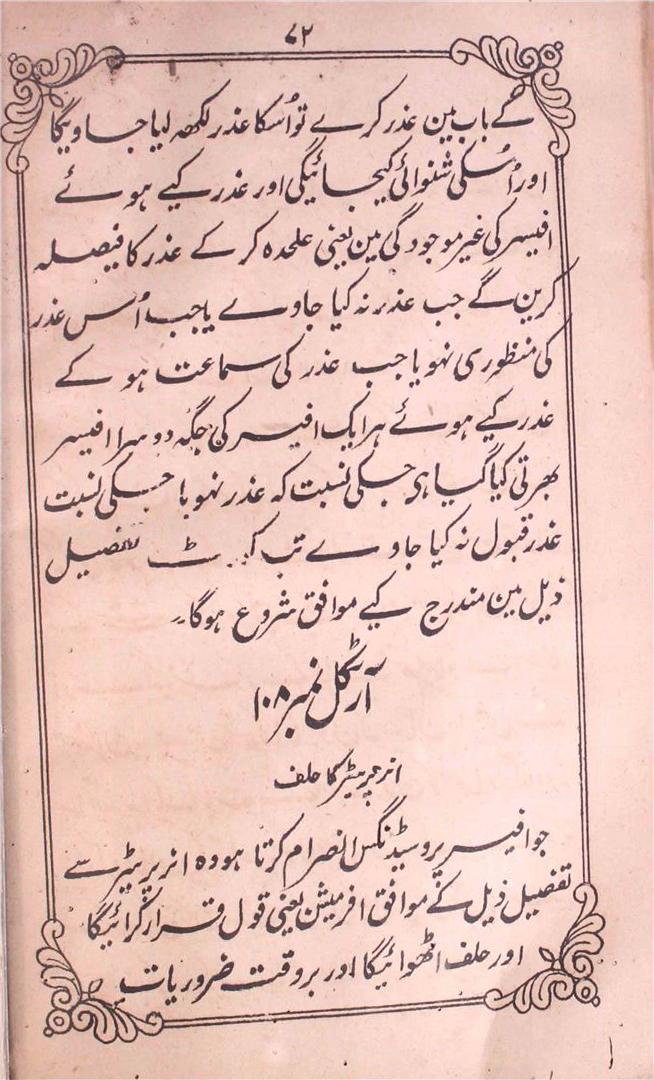 ۸۲
کے باب مین عذر کرے تو اُسکا عذر لکھہ لیا جاویگا
اور اُسکی شنوائی کیجائیگی اور عذر کیے ہوئے
افیسر کی غیر موجودگی مین یعنی علحدہ کر کے عذر کا فیصلہ
کرین گے جب عذر نہ کیا جاوے یا جب اُس عذر
کی منظوری نہو یا جب عذر کی سماعت ہو کے
عذر کیے ہوئے ہر ایک افیسر کی جگہ دوسرا افیسر
بھرتی کیا گیا ہی جسکی نسبت کہ عذر نہو یا جسکی نسبت
عذر قبول نہ کیا جاوے تب کورٹ تفصیل
ذیل مین مندرج کیے موافق شروع ہوگا۔
آرٹکل نمبر ۱۰۸
انٹرپریٹر کا حلف
جو افیسر پروسیڈنگس انصرام کرتا ہو وہ انٹرپریٹر سے
تفصیل ذیل کے موافق افرمیشن یعنی قول قرار کرائیگا
اور حلف اٹھوائیگا اور بروقت ضروریات